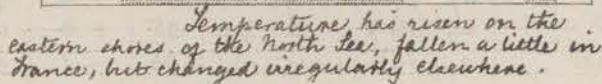 Temperature has risen on the
eastern shores of the North Sea, fallen a little in
France, but changed irregularly elsewhere.